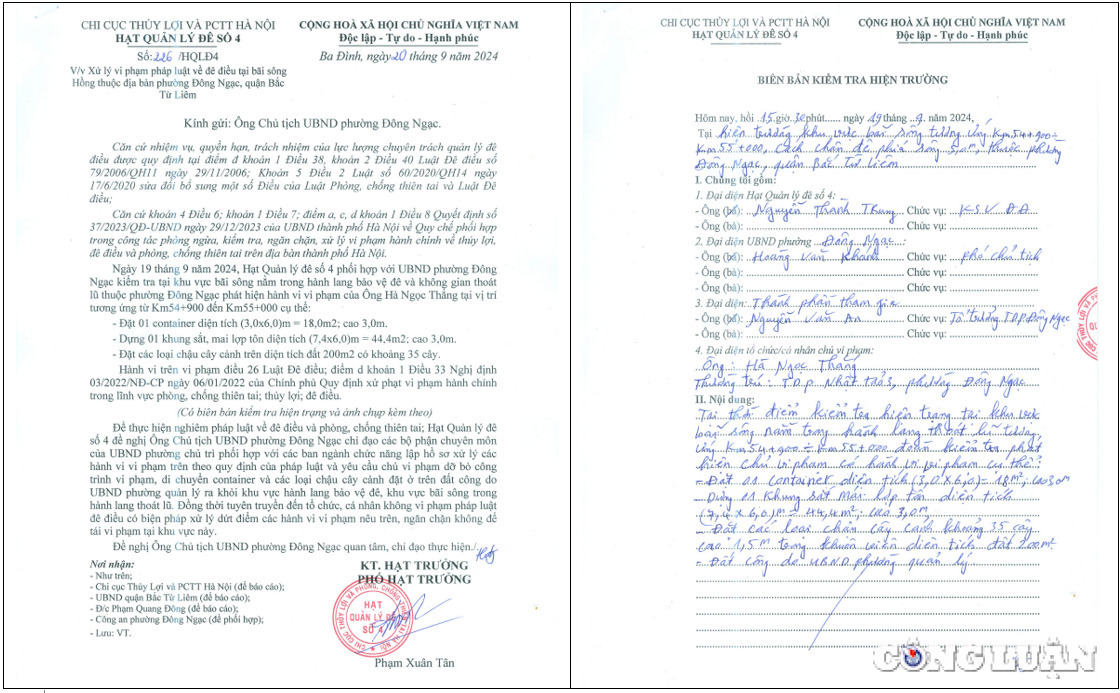 CHI CỤC THỦY LỢI VÀ PCTT HÀ NỘI
HẠT QUẢN LÝ ĐÊ SỐ 4
CỘNG HOÀ XÃ HỘI CHỦ NGHĨA VIỆT NAM
Độc lập - Tự do - Hạnh phúc
Số: 226 /HQLĐ4
Ba Đình, ngày 20 tháng 9 năm 2024
V/v Xử lý vi phạm pháp luật về đê điều tại bãi sông
Hồng thuộc địa bàn phường Đông Ngạc, quận Bắc
Từ Liêm
Kính gửi: Ông Chủ tịch UBND phường Đông Ngạc.
Căn cứ nhiệm vụ, quyền hạn, trách nhiệm của lực lượng chuyên trách quản lý đê
điều được quy định tại điểm đ khoản 1 Điều 38, khoản 2 Điều 40 Luật Đê điều số
79/2006/QH11 ngày 29/11/2006; Khoản 5 Điều 2 Luật số 60/2020/QH14 ngày
17/6/2020 sửa đổi bổ sung một số Điều của Luật Phòng, chống thiên tai và Luật Đê
điều;
Căn cứ khoản 4 Điều 6; khoản 1 Điều 7; điểm a, c, d khoản 1 Điều 8 Quyết định số
37/2023/QĐ-UBND ngày 29/12/2023 của UBND thành phố Hà Nội về Quy chế phối hợp
trong công tác phòng ngừa, kiểm tra, ngăn chặn, xử lý vi phạm hành chính về thủy lợi,
đê điều và phòng, chống thiên tai trên địa bàn thành phố Hà Nội.
Ngày 19 tháng 9 năm 2024, Hạt Quản lý đê số 4 phối hợp với UBND phường Đông
Ngạc kiểm tra tại khu vực bãi sông nằm trong hành lang bảo vệ đê và không gian thoát
lũ thuộc phường Đông Ngạc phát hiện hành vi vi phạm của Ông Hà Ngọc Thắng tại vị trí
tương ứng từ Km54+900 đến Km55+000 cụ thể:
- Đặt 01 container diện tích (3,0x6,0)m = 18,0m2; cao 3,0m.
- Dựng 01 khung sắt, mai lợp tôn diện tích (7,4x6,0)m = 44,4m2; cao 3,0m.
- Đặt các loại chậu cây cảnh trên diện tích đất 200m2 có khoảng 35 cây.
Hành vi trên vi phạm điều 26 Luật Đê điều; điểm d khoản 1 Điều 33 Nghị định
03/2022/NĐ-CP ngày 06/01/2022 của Chính phủ Quy định xử phạt vi phạm hành chính
trong lĩnh vực phòng, chống thiên tai; thủy lợi; đê điều.
(Có biên bản kiểm tra hiện trạng và ảnh chụp kèm theo)
Để thực hiện nghiêm pháp luật về đê điều và phòng, chống thiên tai; Hạt Quản lý đê
số 4 đề nghị Ông Chủ tịch UBND phường Đông Ngạc chỉ đạo các bộ phận chuyên môn
của UBND phường chủ trì phối hợp với các ban ngành chức năng lập hồ sơ xử lý các
hành vi vi phạm trên theo quy định của pháp luật và yêu cầu chủ vi phạm dỡ bỏ công
trình vi phạm, di chuyển container và các loại chậu cây cảnh đặt ở trên đất công do
UBND phường quản lý ra khỏi khu vực hành lang bảo vệ đê, khu vực bãi sông trong
hành lang thoát lũ. Đồng thời tuyên truyền đến tổ chức, cá nhân không vi phạm pháp luật
đê điều có biện pháp xử lý dứt điểm các hành vi vi phạm nêu trên, ngăn chặn không để
tái vi phạm tại khu vực này.
Đề nghị Ông Chủ tịch UBND phường Đông Ngạc quan tâm, chỉ đạo thực hiện./.
Nơi nhận:
- Như trên;
- Chi cục Thủy Lợi và PCTT Hà Nội (để báo cáo);
- UBND quận Bắc Từ Liêm (để báo cáo);
- Đ/c Phạm Quang Đông (để báo cáo);
- Công an phường Đông Ngạc (để phối hợp);
- Lưu: VT.
KT. HẠT TRƯỞNG
PHÓ HẠT TRƯỞNG
CHI CỤC THỦY LỢI VÀ PHÒNG, CHỐNG THIÊN TAI HÀ NỘI
HẠT
QUẢN LÝ ĐÊ
SỐ 4
Phạm Xuân Tân
CHI CỤC THỦY LỢI VÀ PCTT HÀ NỘI
HẠT QUẢN LÝ ĐÊ SỐ 4
CỘNG HOÀ XÃ HỘI CHỦ NGHĨA VIỆT NAM
Độc lập - Tự do - Hạnh phúc
BIÊN BẢN KIỂM TRA HIỆN TRƯỜNG
Hôm nay, hồi 15 giờ 30 phút...... ngày 19 tháng 9 năm 2024,
Tại hiện trường khu vực bãi sông tương ứng Km54+900÷
Km55+000, cách chân đê phía sông 5,0m, thuộc phường
Đông Ngạc, quận Bắc Từ Liêm
I. Chúng tôi gồm:
1. Đại diện Hạt Quản lý đê số 4:
- Ông (bà): Nguyễn Thành Trung Chức vụ: KSV ĐĐ
- Ông (bà): Chức vụ:
2. Đại diện UBND phường Đông Ngạc:
- Ông (bà): Hoàng Văn Khánh Chức vụ: phó chủ tịch
- Ông (bà): Chức vụ:
3. Đại diện: Thành phần tham gia
- Ông (bà): Nguyễn Văn An Chức vụ: Tổ trưởng TDP Đông Ngạc
- Ông (bà): Chức vụ:
4. Đại diện tổ chức/cá nhân chủ vi phạm:
Ông: Hà Ngọc Thắng
Thường trú: TDP Nhật Tảo 3, phường Đông Ngạc
II. Nội dung:
Tại thời điểm kiểm tra hiện trạng tại khu vực
bãi sông nằm trong hành lang thoát lũ tương
ứng Km54+900 ÷ Km55+000 đoàn kiểm tra phát
hiện chủ vi phạm có hành vi vi phạm cụ thể:
- Đặt 01 container diện tích (3,0x6,0)= 18m²; cao 3,0m
- Dựng 01 khung sắt mái lợp tôn diện tích
(7,4x6,0)m = 44,4m²; cao 3,0m.
- Đặt các loại chân cây cảnh khoảng 35 cây
cao 1,5m trong khuôn viên diện tích đất 200m²
- Đất công do UBND phường quản lý
CÔNG LUẬN